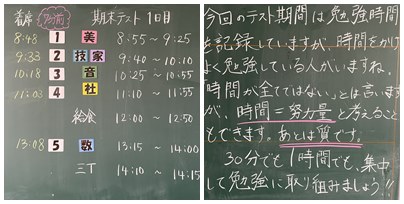 着席 7分前 期末テスト1日目
8:48 1 美 8:55〜9:25
9:33 2 技家 9:40〜10:10
10:18 3 音 10:25〜10:55
11:03 4 社 11:10〜11:55
給食 12:00〜12:50
13:08 5 数 13:15〜14:00
三丁 14:10〜14:15
今回のテスト期間は勉強時間
を記録していますが、時間をかけ
よく勉強している人がいますね。
時間が全てではない。とは言います
が、時間=努力量と考えること
もできます。あとは質です。
30分でも1時間でも、集中
して勉強に取り組みましょう!!